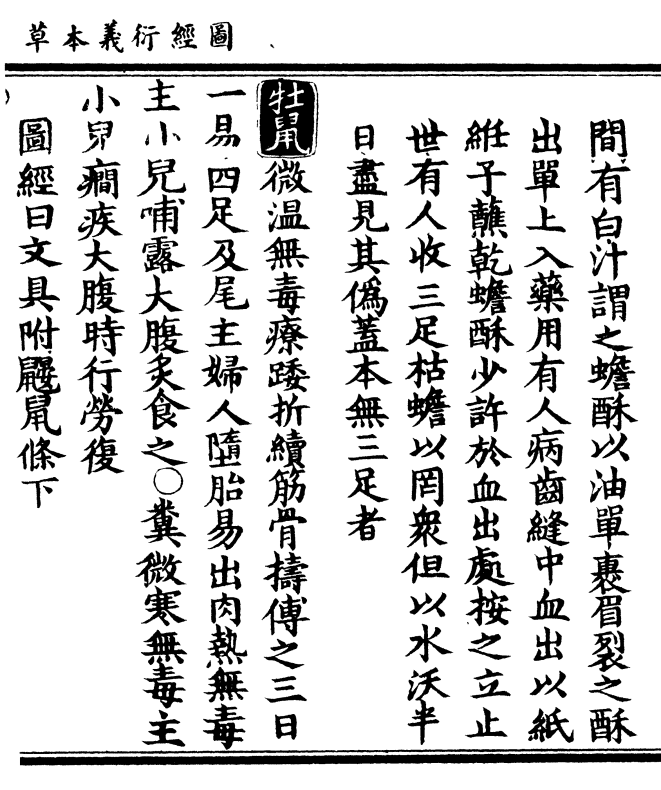 圖經衍義本草
間有白汁謂之蟾酥以油單裹眉裂之酥
出單上入藥用有人病齒縫中血出以紙
絍子蘸乾蟾酥少許於血出處按之立止
世有人收三足枯蟾以罔衆但以水沃半
日盡見其僞蓋本無三足者
牡鼠微溫無毒療踒折續筋骨擣傅之三日
一易四足及尾主婦人墮胎易出肉熱無毒
主小兒哺露大腹炙食之○糞微寒無毒主
小兒癇疾大腹時行勞復
圖經曰文具附鼹鼠條下